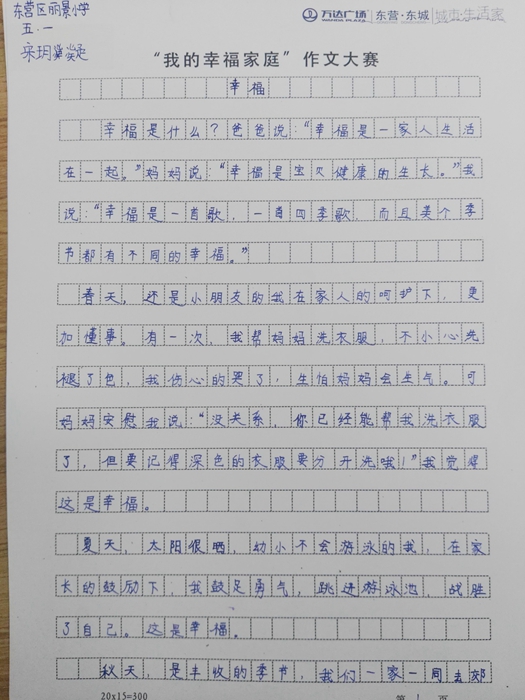 东营区丽景小学
万达广场 东营·东城 城市·生活家
WANDA PLAZA
五.一
宋玥
“我的幸福家庭”作文大赛
幸福
幸福是什么?爸爸说:“幸福是一家人生活
在一起。”妈妈说:“幸福是宝贝健康的生长。”我
说:“幸福是一首歌,一首四季歌,而且每个季
节都有不同的幸福。”
春天,还是小朋友的我在家人的呵护下,更
加懂事。有一次,我帮妈妈洗衣服,不小心洗
褪了色,我伤心的哭了,生怕妈妈会生气。可
妈妈安慰我说:“没关系,你已经能帮我洗衣服
了,但要记得深色的衣服要分开洗哦!”我觉得
这是幸福。
夏天,太阳很晒,幼小不会游泳的我,在家
长的鼓励下,我鼓足勇气,跳进游泳池,战胜
了自己。这是幸福。
秋天,是丰收的季节,我们一家一同去郊
20x15=300 第 1 页